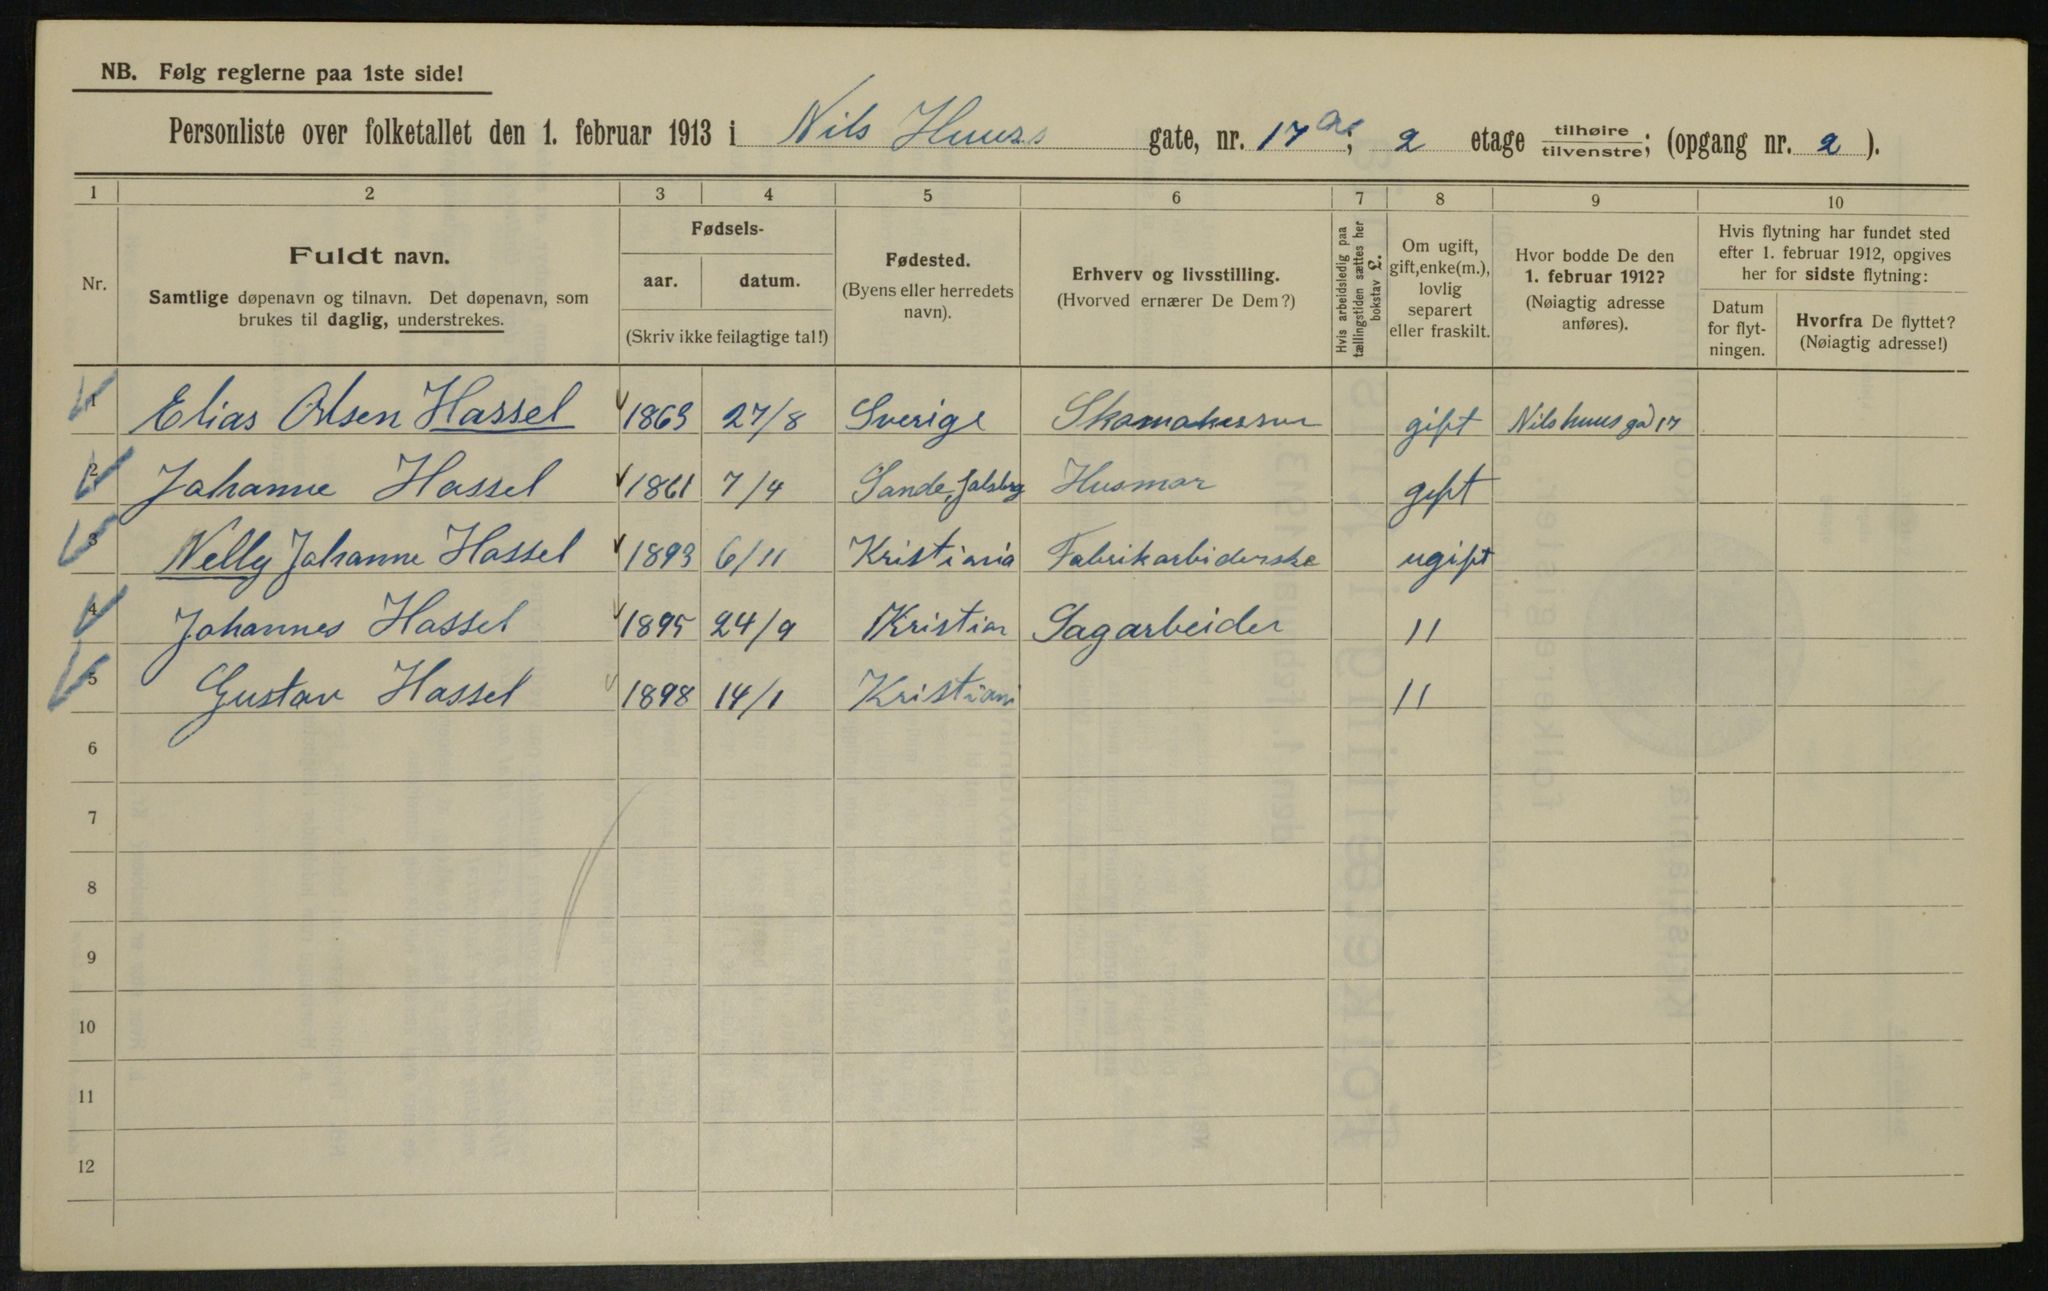 NB. Følg reglerne paa 1ste side!
Personliste over folketallet den 1. februar 1913 i Nils Huus gate, nr. 17, 2 etage tilhøire/tilvenstre; (opgang nr. 2).
1 2 3 4 5 6 7 8 9 10
Nr.
Fuldt navn.
Samtlige døpenavn og tilnavn. Det døpenavn, som
brukes til daglig, understrekes.
Fødsels-
aar. datum.
(Skriv ikke feilagtige tal!)
Fødested.
(Byens eller herredets
navn).
Erhverv og livsstilling.
(Hvorved ernærer De Dem?)
Hvis arbeidsledig paa
tællingstiden sættes her
bokstav L.
Om ugift,
gift, enke(m.),
lovlig
separert
eller fraskilt.
Hvor bodde De den
1. februar 1912?
(Nøiagtig adresse
anføres).
Hvis flytning har fundet sted
efter 1. februar 1912, opgives
her for sidste flytning:
Datum
for flyt-
ningen.
Hvorfra De flyttet?
(Nøiagtig adresse!)
1 Elias Olsen Hassel 1863 27/8 Sverige gift Nilshuusgd 17
2 Johanne Hassel 1861 7/4 Sande, Jalsberg Husmor gift
3 Nelly Johanne Hassel 1893 6/11 Kristiania Fabrikarbiderske ugift
4 Johannes Hassel 1895 24/9 Kristian Sagarbeider 11
5 Gustav Hassel 1898 14/1 Kristiani 11
6
7
8
9
10
11
12